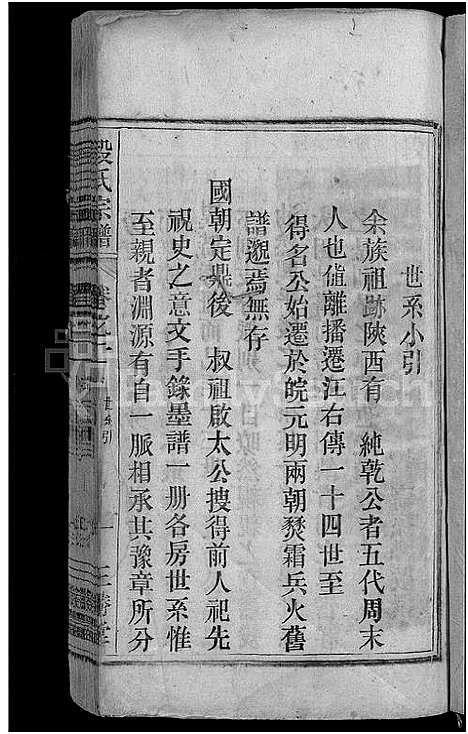 世系小引
余族祖跡陝西有 純乾公者五代周末
人也值離播遷江右傳一十四世至
得名公始遷於皖元明兩朝燹霜兵火舊
譜邈焉無存
國朝定鼎後 叔祖啟太公搜得前人祀先
祝史之意文手錄墨譜一册各房世系惟
至親者淵源有自一脈相承其豫章所分
段氏宗譜
卷之